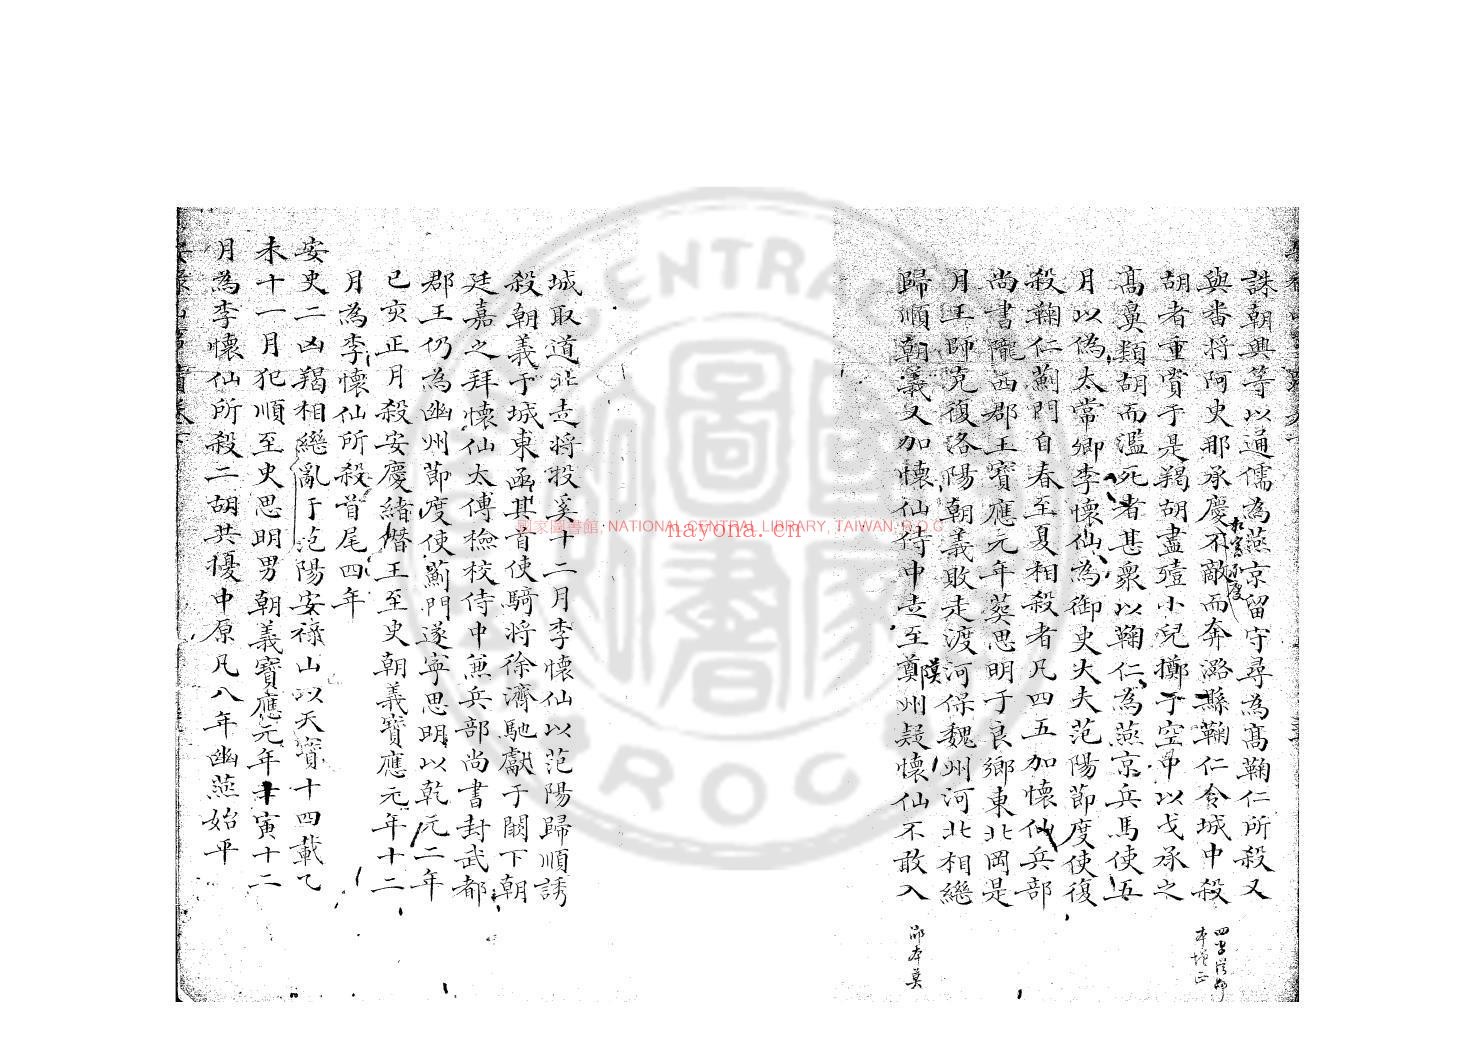 誅朝興等以通儒為燕京留守尋為髙鞠仁所殺又
與畨將阿史那承慶不敵而奔潞縣鞠仁令城中殺
胡者重賞于是羯胡盡殪小兒擲于空中以戈承之
髙鼻類胡而濫死者甚衆以鞠仁為燕京兵馬使五
月以偽太常卿李懷仙為御史大夫范陽節度使復
殺鞠仁薊門自春至夏相殺者凡四五加懷仙兵部
尚書隴西郡王寳應元年葬思明于良鄉東北岡是
月王師克復洛陽朝義敗走渡河保魏州河北相繼
歸順朝義又加懷仙侍中走至鄚州疑懷仙不敢入
邱本莫
城取道北走將投奚十二月李懷仙以范陽歸順誘
殺朝義于城東函其首使騎將徐濟馳獻于闕下朝
廷嘉之拜懷仙太傅檢校侍中兼兵部尚書封武都
郡王仍為幽州節度使薊門遂寧思明以乾元二年
已亥正月殺安慶緒僭王至史朝義寳應元年十二
月為李懷仙所殺首尾四年
安史二凶羯相繼亂于范陽安祿山以天寳十四載乙
未十一月犯順至史思明男朝義寳應元年寅十二
月為李懷仙所殺二胡共擾中原凡八年幽燕始平
國家圖書館, NATIONAL CENTRAL LIBRARY, TAIWAN, R.O.C
nayona.cn
NATIONAL CENTRAL LIBRARY
ROC